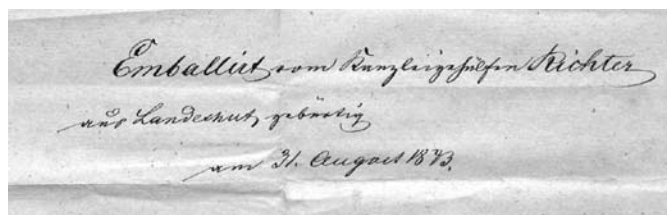 Emballirt vom Kanzleigehülfen Richter
aus Landeshut, gebürtig
am 31. August 1873.